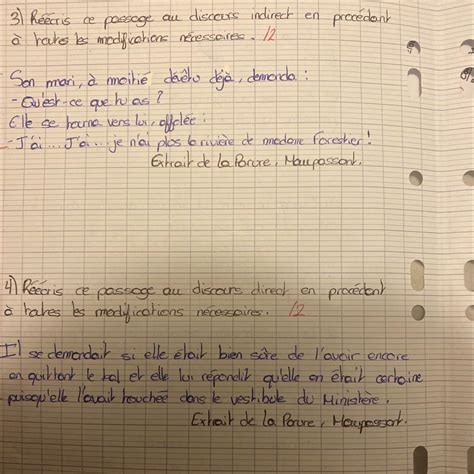 3) Réécris ce passage au discours indirect en procédant
à toutes les modifications nécessaires. /2
- Son mari, à moitié dévêtu déjà, demanda :
- Qu'est-ce que tu as ?
Elle se tourna vers lui, affolée :
- J'ai... J'ai... je n'ai plus la rivière de madame Forestier !
Extrait de La Parure, Maupassant.
4) Réécris ce passage au discours direct en procédant
à toutes les modifications nécessaires. /2
Il se demandait si elle était bien sûre de l'avoir encore
en quittant le bal et elle lui répondit qu'elle en était certaine
puisqu'elle l'avait touchée dans le vestibule du Ministère.
Extrait de La Parure, Maupassant.